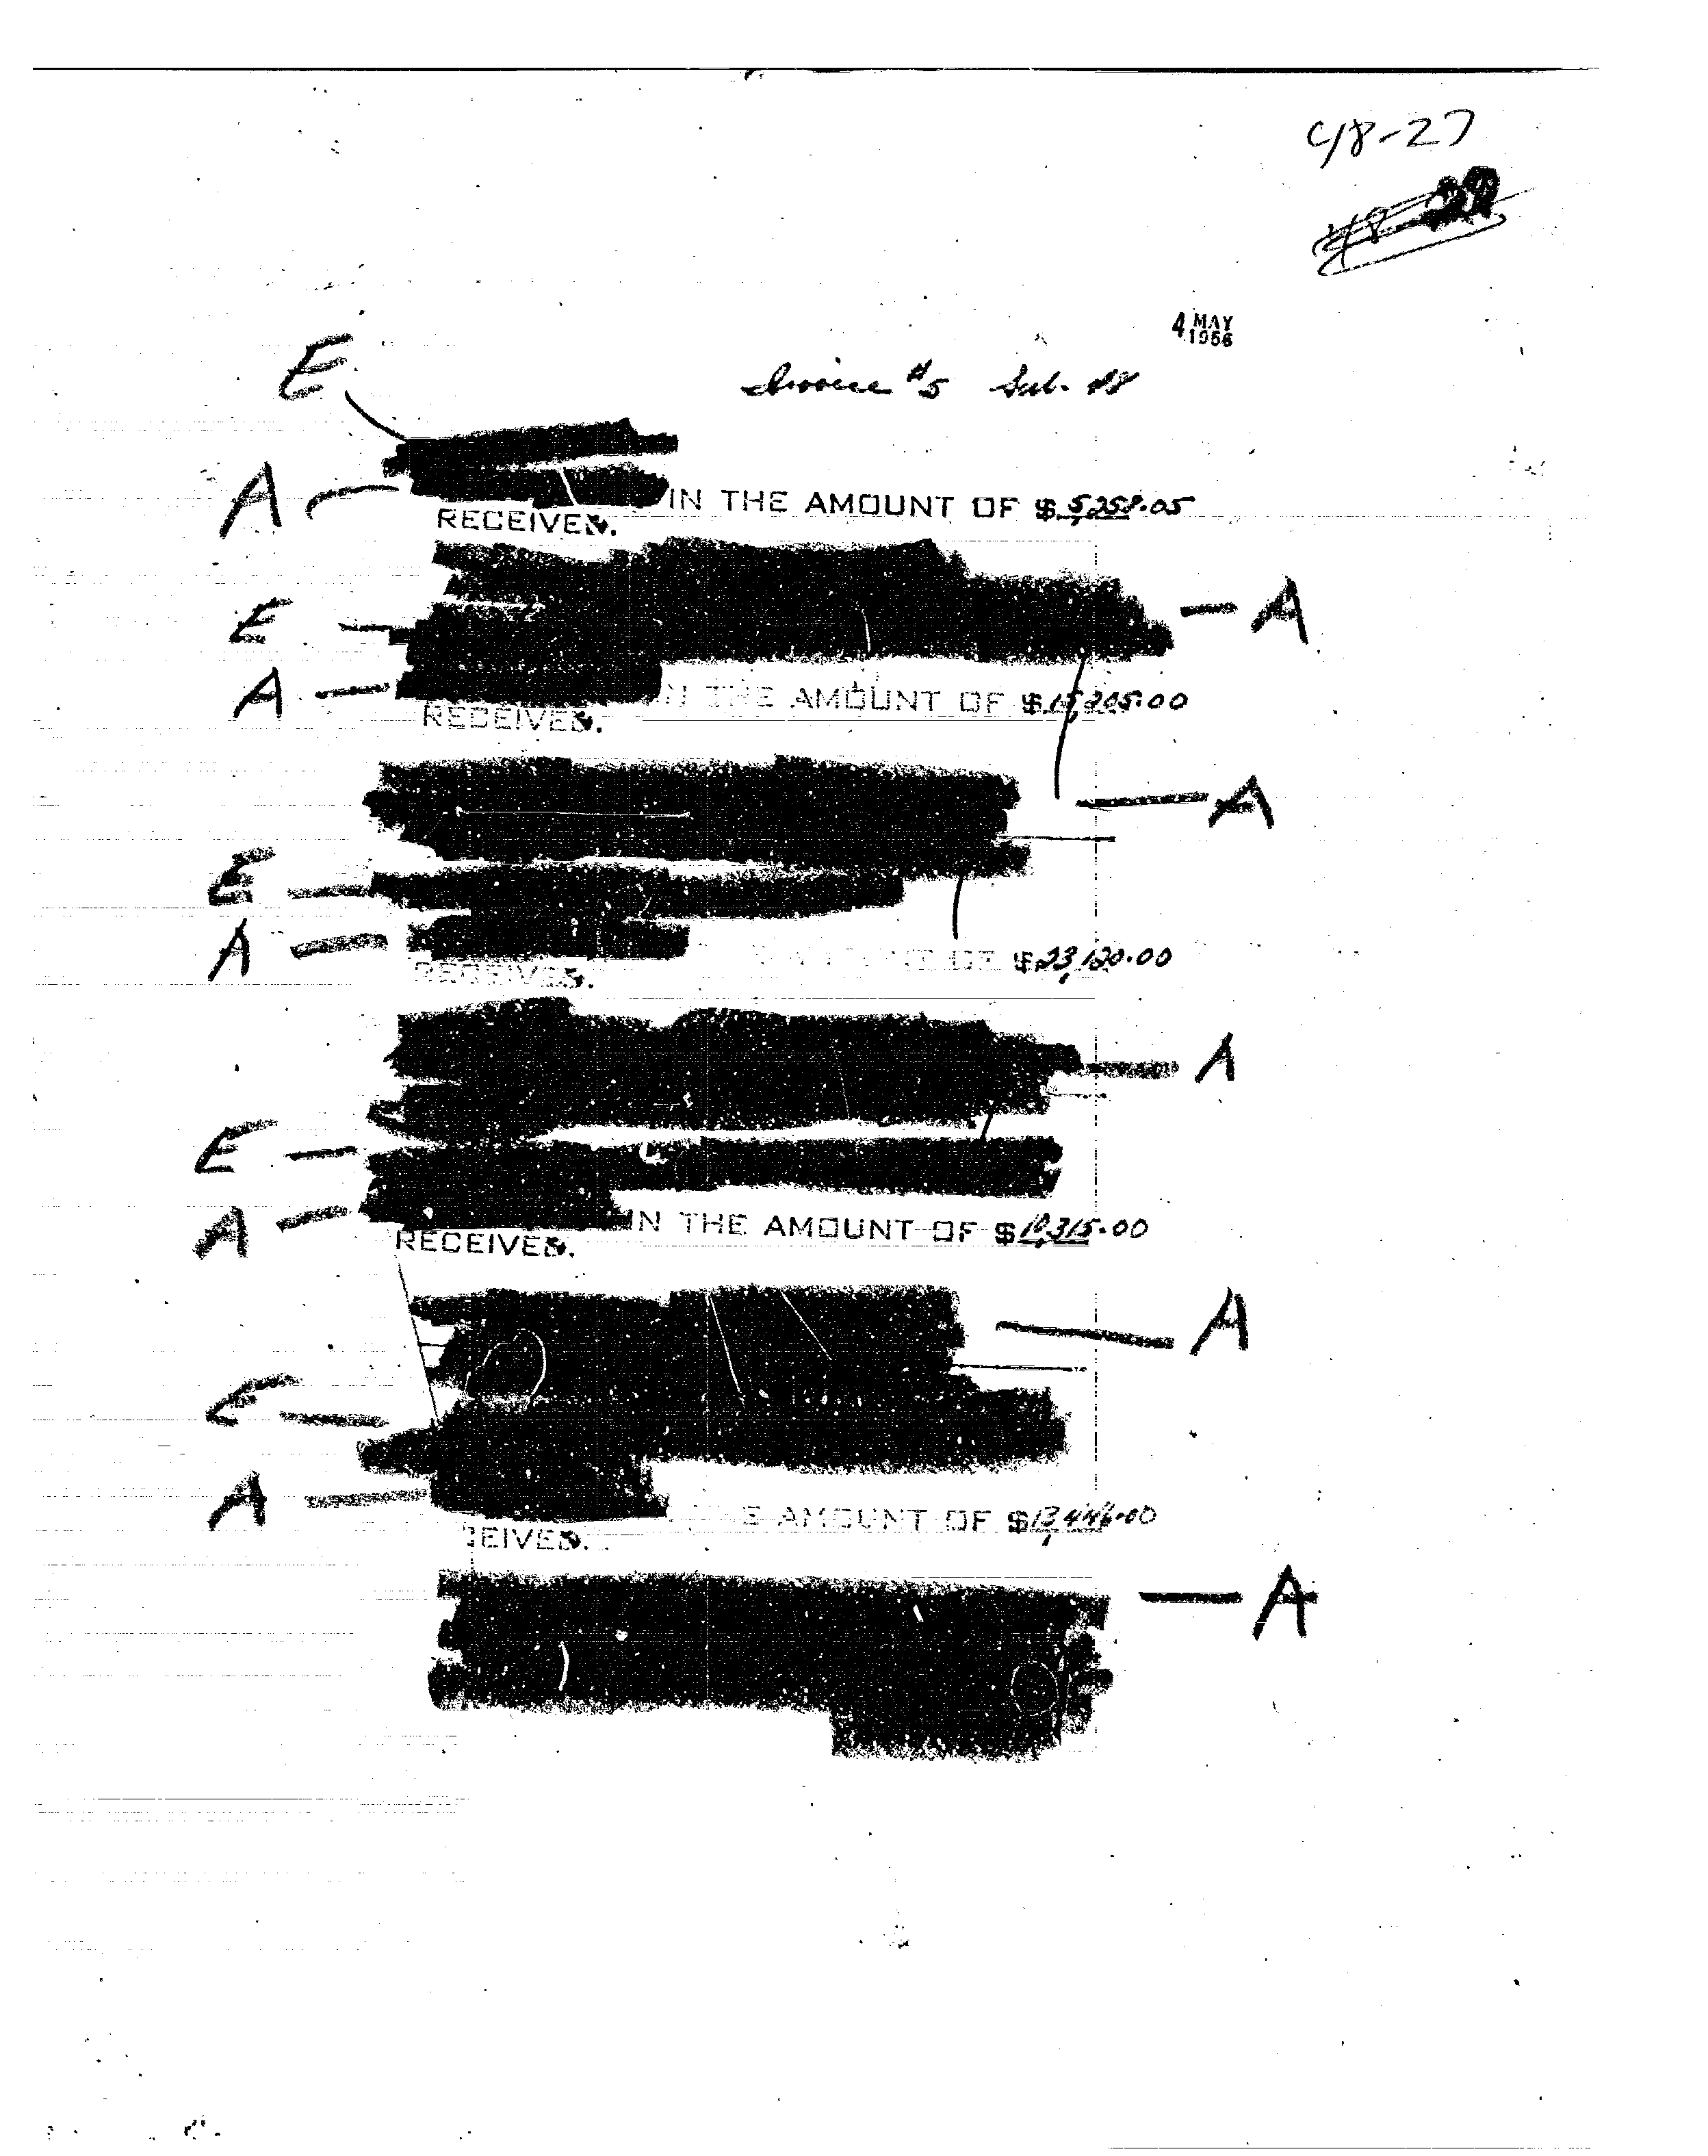 48-27
4 MAY
1956
E
Invoice #5 Sub. 48
A
IN THE AMOUNT OF $
RECEIVED.
E A
A
IN THE AMOUNT OF $
RECEIVED.
A
E
A
AMOUNT OF $23,120.00
RECEIVED.
A
E
A
IN THE AMOUNT OF $10,315.00
RECEIVED.
A
E
A
E AMOUNT OF $13,446.00
CEIVED.
A